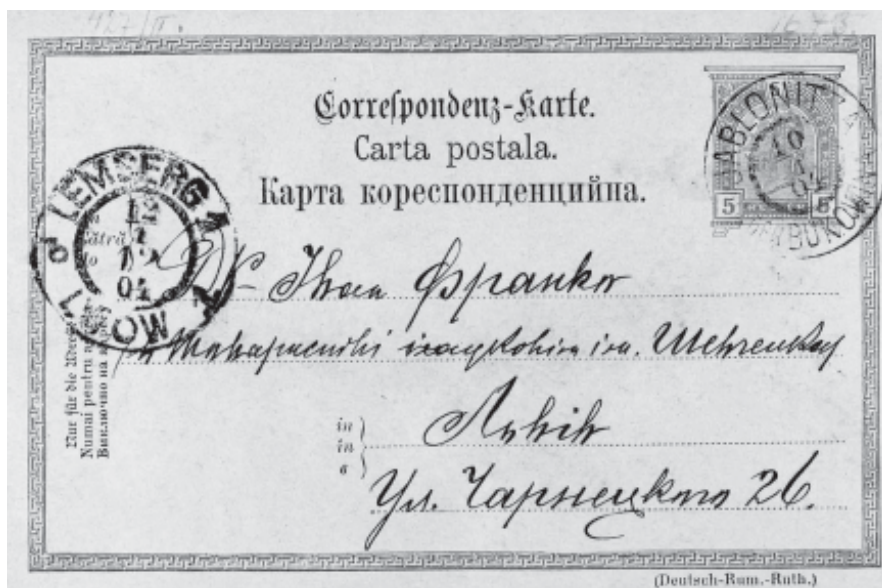 427/II.
Correspondenz-Karte.
Carta postala.
Карта кореспонденцийна.
JABLONITZA
10
BUKOWINA
5 5
LEMBERG 1
LWÓW 1
12
04
Др Іван Франко
в Товаристві ім. Шевченка
in
în
в
Львів
Ул. Чарнецкого 26.
Nur für die
Numai pentru
Виключно на
(Deutsch-Rum.-Ruth.)